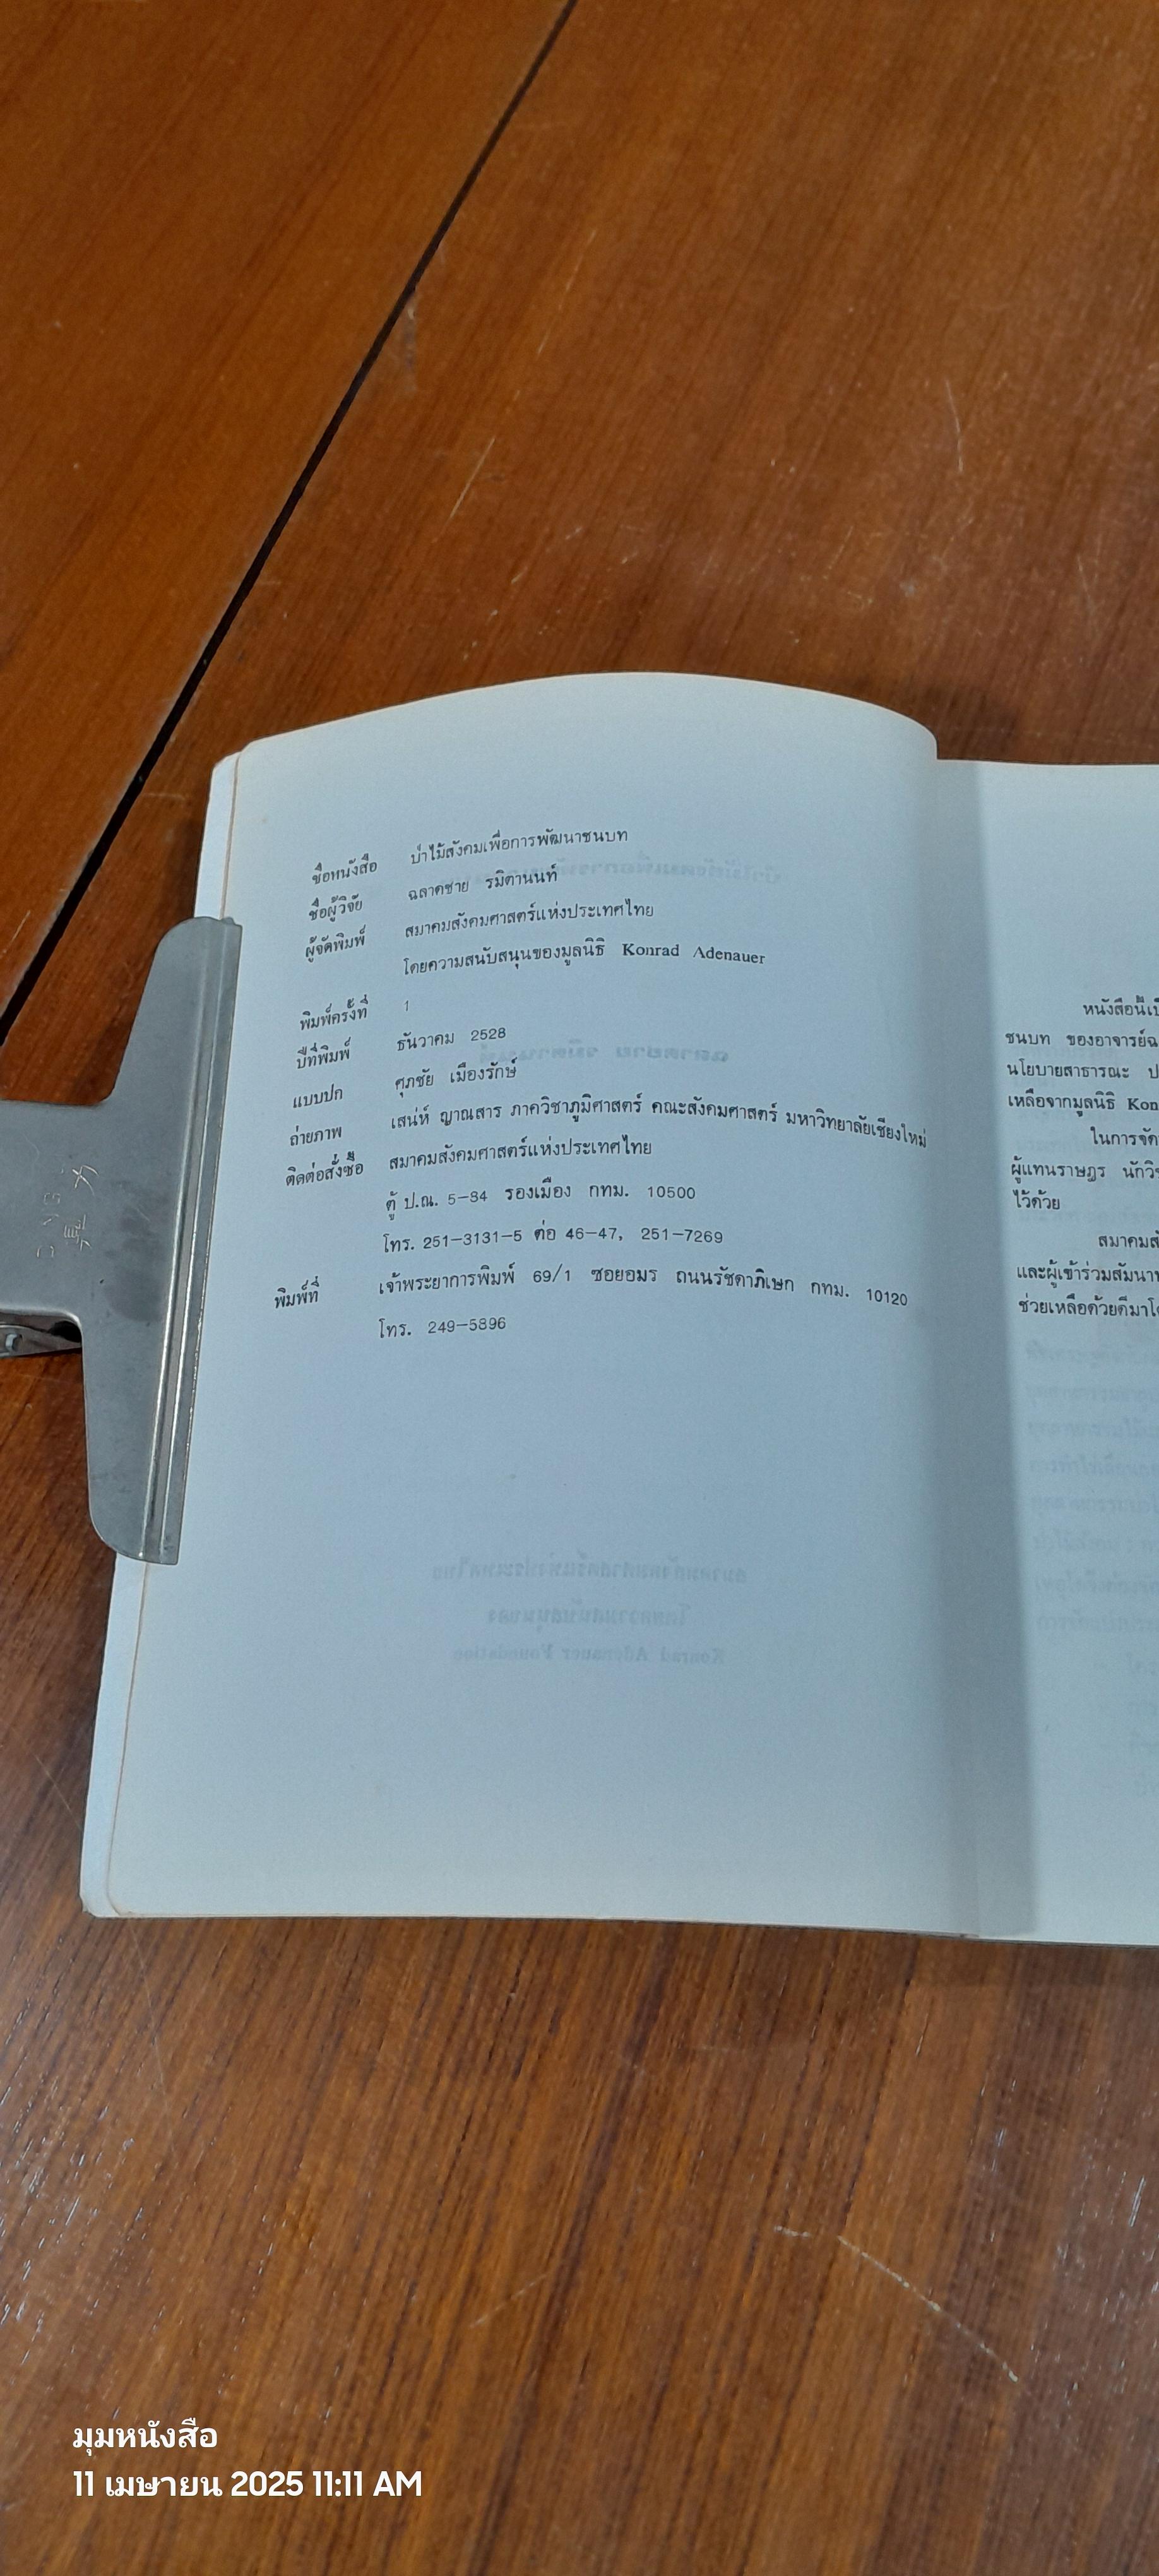 ชื่อหนังสือ ป่าไม้สังคมเพื่อการพัฒนาชนบท
ชื่อผู้วิจัย ฉลาดชาย รมิตานนท์
ผู้จัดพิมพ์ สมาคมสังคมศาสตร์แห่งประเทศไทย
โดยความสนับสนุนของมูลนิธิ Konrad Adenauer
พิมพ์ครั้งที่ 1
ปีที่พิมพ์ ธันวาคม 2528
แบบปก ศุภชัย เมืองรักษ์
ถ่ายภาพ เสน่ห์ ญาณสาร ภาควิชาภูมิศาสตร์ คณะสังคมศาสตร์ มหาวิทยาลัยเชียงใหม่
ติดต่อสั่งซื้อ สมาคมสังคมศาสตร์แห่งประเทศไทย
ตู้ ป.ณ. 5-84 รองเมือง กทม. 10500
โทร. 251-3131-5 ต่อ 46-47, 251-7269
พิมพ์ที่ เจ้าพระยาการพิมพ์ 69/1 ซอยอมร ถนนรัชดาภิเษก กทม. 10120
โทร. 249-5896
หนังสือนี้เป็
ชนบท ของอาจารย์ฉ
นโยบายสาธารณะ ป
เหลือจากมูลนิธิ Kon
ในการจัด
ผู้แทนราษฎร นักวิช
ไว้ด้วย
สมาคมสั
และผู้เข้าร่วมสัมนา
ช่วยเหลือด้วยดีมาโด
มุมหนังสือ
11 เมษายน 2025 11:11 AM